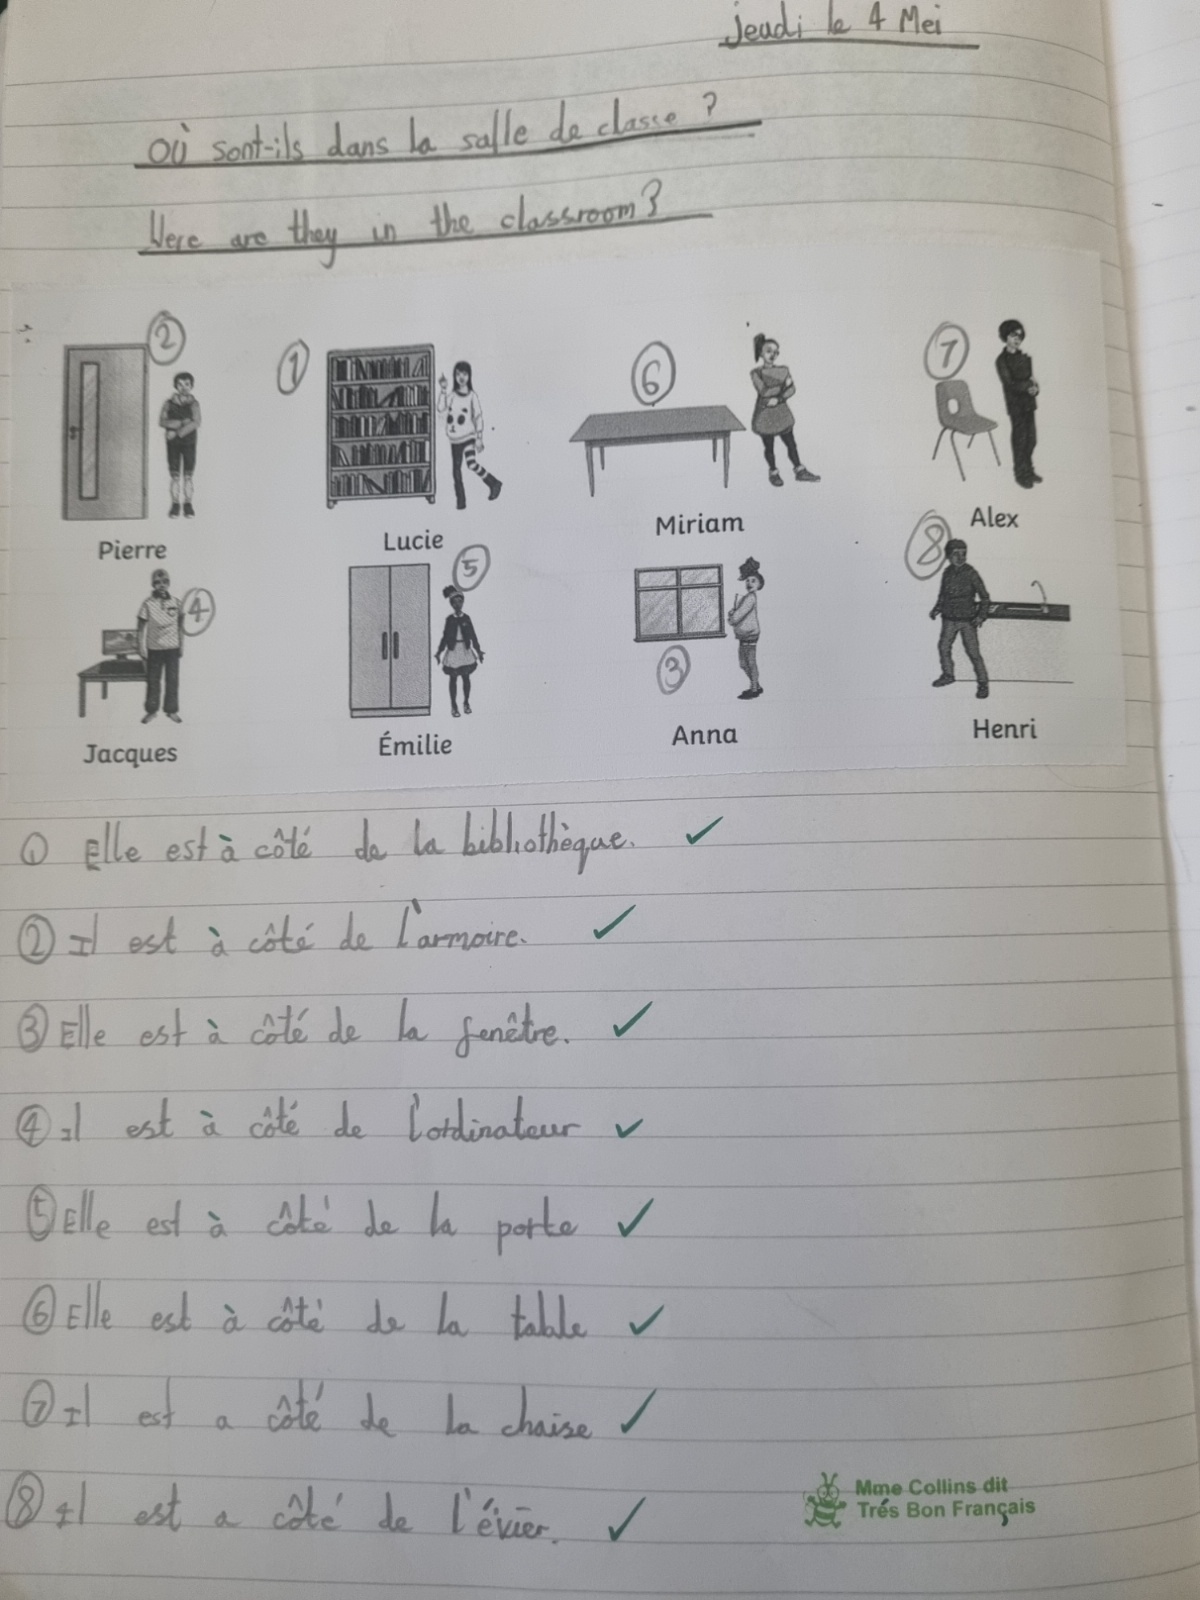 jeudi le 4 Mei
Où sont-ils dans la salle de classe ?
Were are they in the classroom?
2 1 6 7
Pierre Lucie Miriam Alex
4 5 3 8
Jacques Émilie Anna Henri
① Elle est à côté de la bibliothèque.
② Il est à côté de l'armoire.
③ Elle est à côté de la fenêtre.
④ Il est à côté de l'ordinateur
⑤ Elle est à côté de la porte
⑥ Elle est à côté de la table
⑦ Il est a côté de la chaise
⑧ Il est a côté de l'évier.
Mme Collins dit
Trés Bon Français